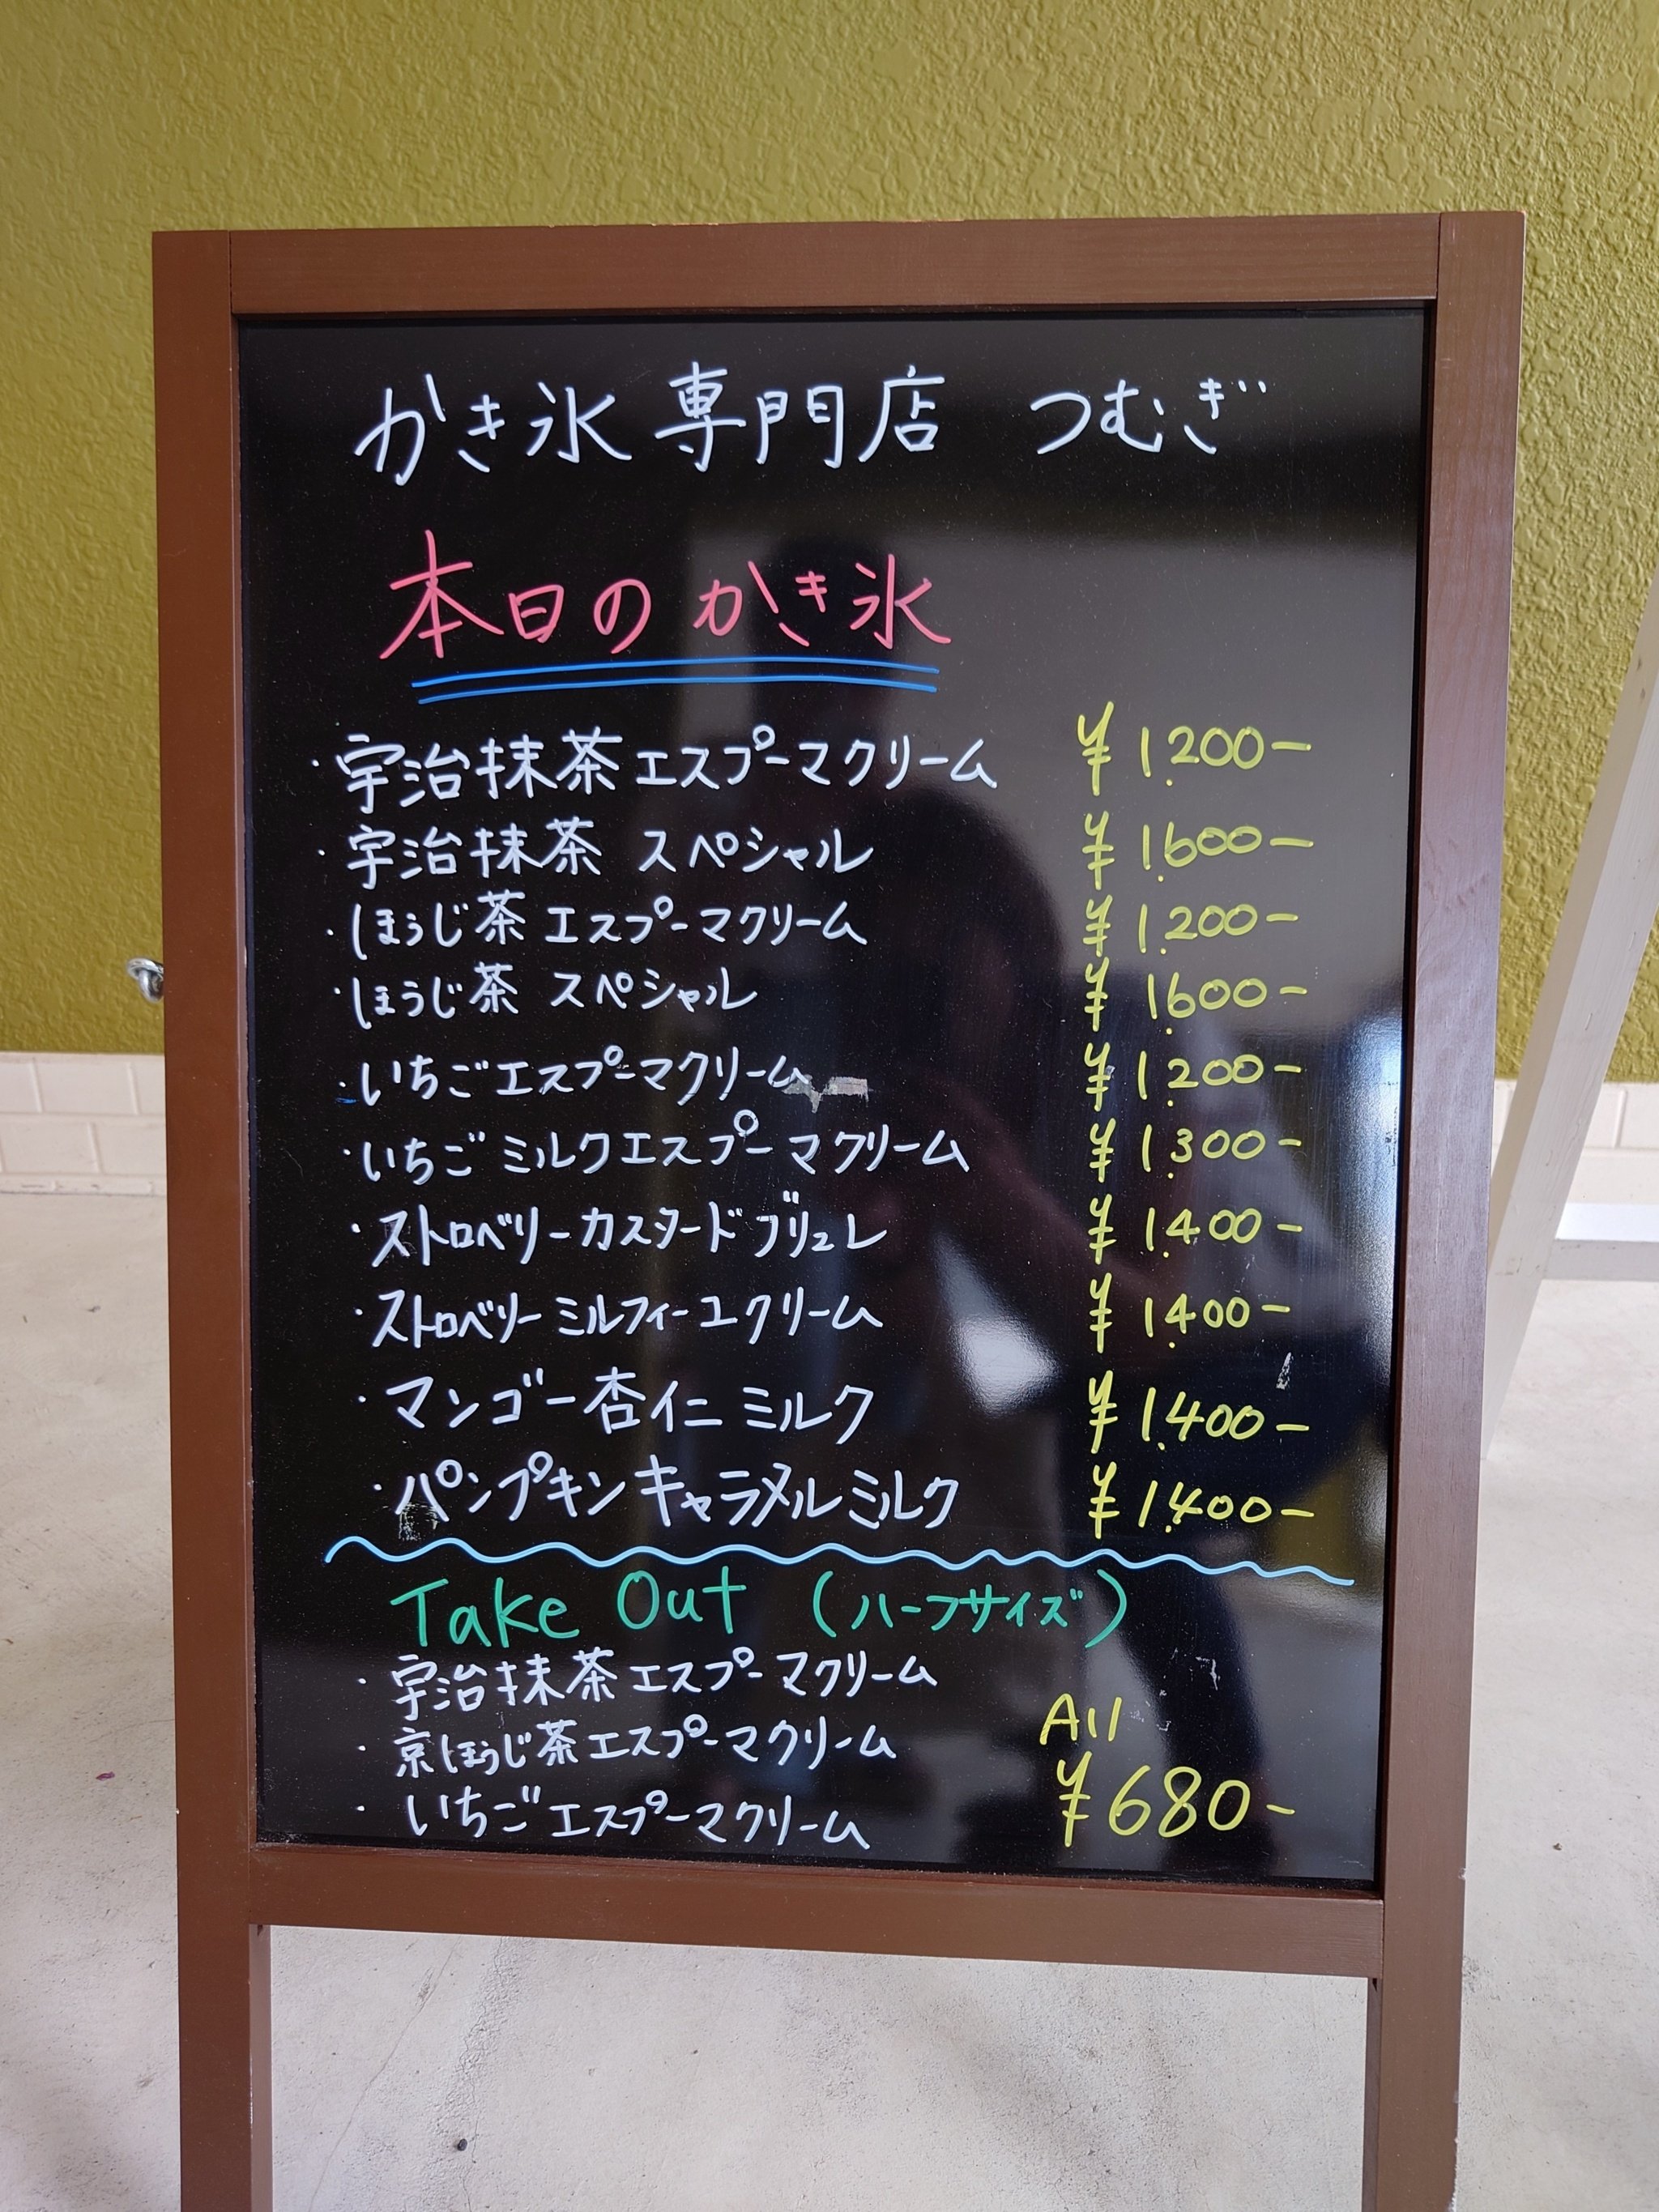 かき氷専門店 つむぎ
本日のかき氷
・宇治抹茶エスプーマクリーム ¥1,200-
・宇治抹茶 スペシャル ¥1,600-
・ほうじ茶 エスプーマクリーム ¥1,200-
・ほうじ茶 スペシャル ¥1,600-
・いちごエスプーマクリーム ¥1,200-
・いちご ミルクエスプーマクリーム ¥1,300-
・ストロベリーカスタードブリュレ ¥1,400-
・ストロベリー ミルフィーユクリーム ¥1,400-
・マンゴー杏仁ミルク ¥1,400-
・パンプキンキャラメルミルク ¥1,400-
Take Out (ハーフサイズ)
・宇治抹茶エスプーマクリーム
・京ほうじ茶エスプーマクリーム
・いちごエスプーマクリーム
All
¥680-